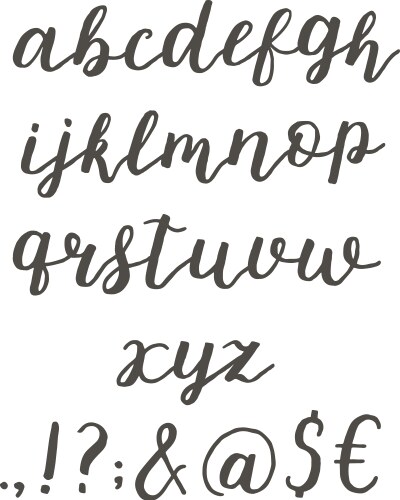 abcdefgh
ijklmnop
qrstuvw
xyz
.,!?;&@$€